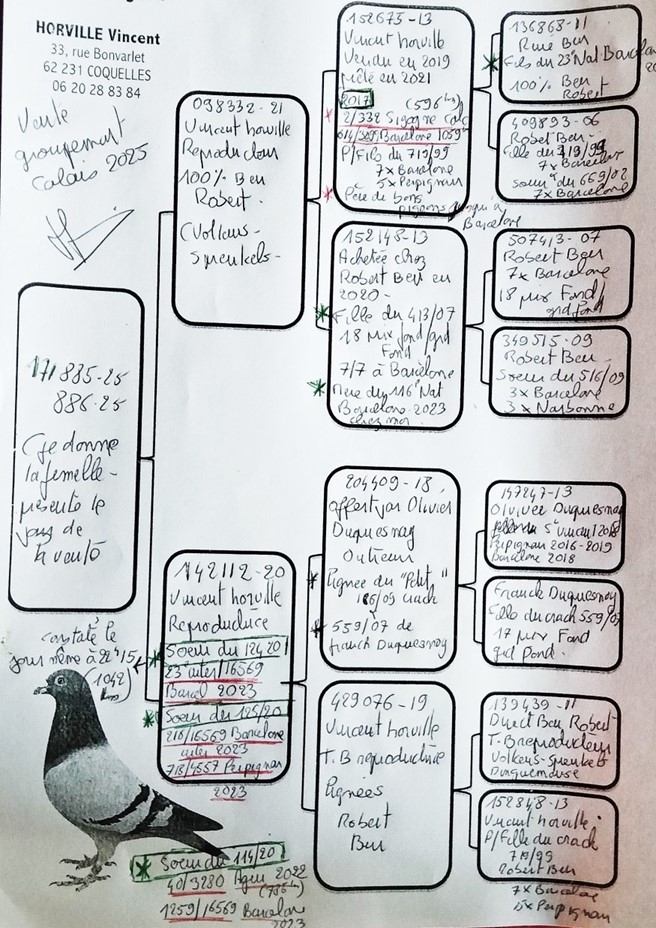 HORVILLE Vincent
33, rue Bonvarlet
62 231 COQUELLES
06 20 28 83 84
Vente
groupement
Calais 2025
171885-25
886-25
(je donne
la femelle-
présente le
jour de
la vente
098332-21
Vincent horville
Reproducteur
100% Ben
Robert.
(Volkens-
Spenkels-
142112-20
Vincent horville
Reproductrice
Soeur du 124/20
23e inter/16569
Barcel 2023
Soeur du 125/20
218/16569 Barcelone
inter 2023
718/4557 Perpignan
2023
constaté le
jour même à 22h15
(1042
kms)
Soeur du 114/20
40/3280 Agen 2022
(735km)
1259/16569 Barcelone
2023
152675-13
Vincent horville
Vendu en 2019
prêté en 2021
2017 (596kms)
2/332 Sigogne Calc
Barcelone 1059
P/Fils du 719/99
7x Barcelone
5x Perpignan
Père de bons
pigeons jusqu'à
Barcelone
152148-13
Achetée chez
Robert Ben en
2020-
Fille du 413/07
18 prix fond/grd
Fond
7/7 à Barcelone
Mère du 116e Nat
Barcelone 2023
chez moi.
204409-18
offert par Olivier
Duquesnoy
Outreau
Lignée du "Petit"
186/09 crack
559/07 de
franck Duquesnoy
429076-19
Vincent horville
T.B reproductrice
Lignées
Robert
Ben
136868-11
Ben
Fils du 23e Nat Barcelone
100% Ben
Robert
409893-06
Robert Ben-
Fille du 719/99
7x Barcelone
soeur du 669/02
7x Barcelone
507413-07
Robert Ben
7x Barcelone
18 prix Fond/
grd fond
349515-09
Robert Ben
Soeur du 516/09
3x Barcelone
3x Narbonne
147247-13
Olivier Duquesnoy
5e 2018
Perpignan 2016-2019
Barcelone 2018
Franck Duquesnoy
Fille du crack 559/07
17 prix Fond
grd fond.
139439-11
Direct Ben Robert
T.B reproducteur
Volkens-Spenkels
152848-13
Vincent horville
P/Fille du crack
719/99
Robert Ben
7x Barcelone
5x Perpignan